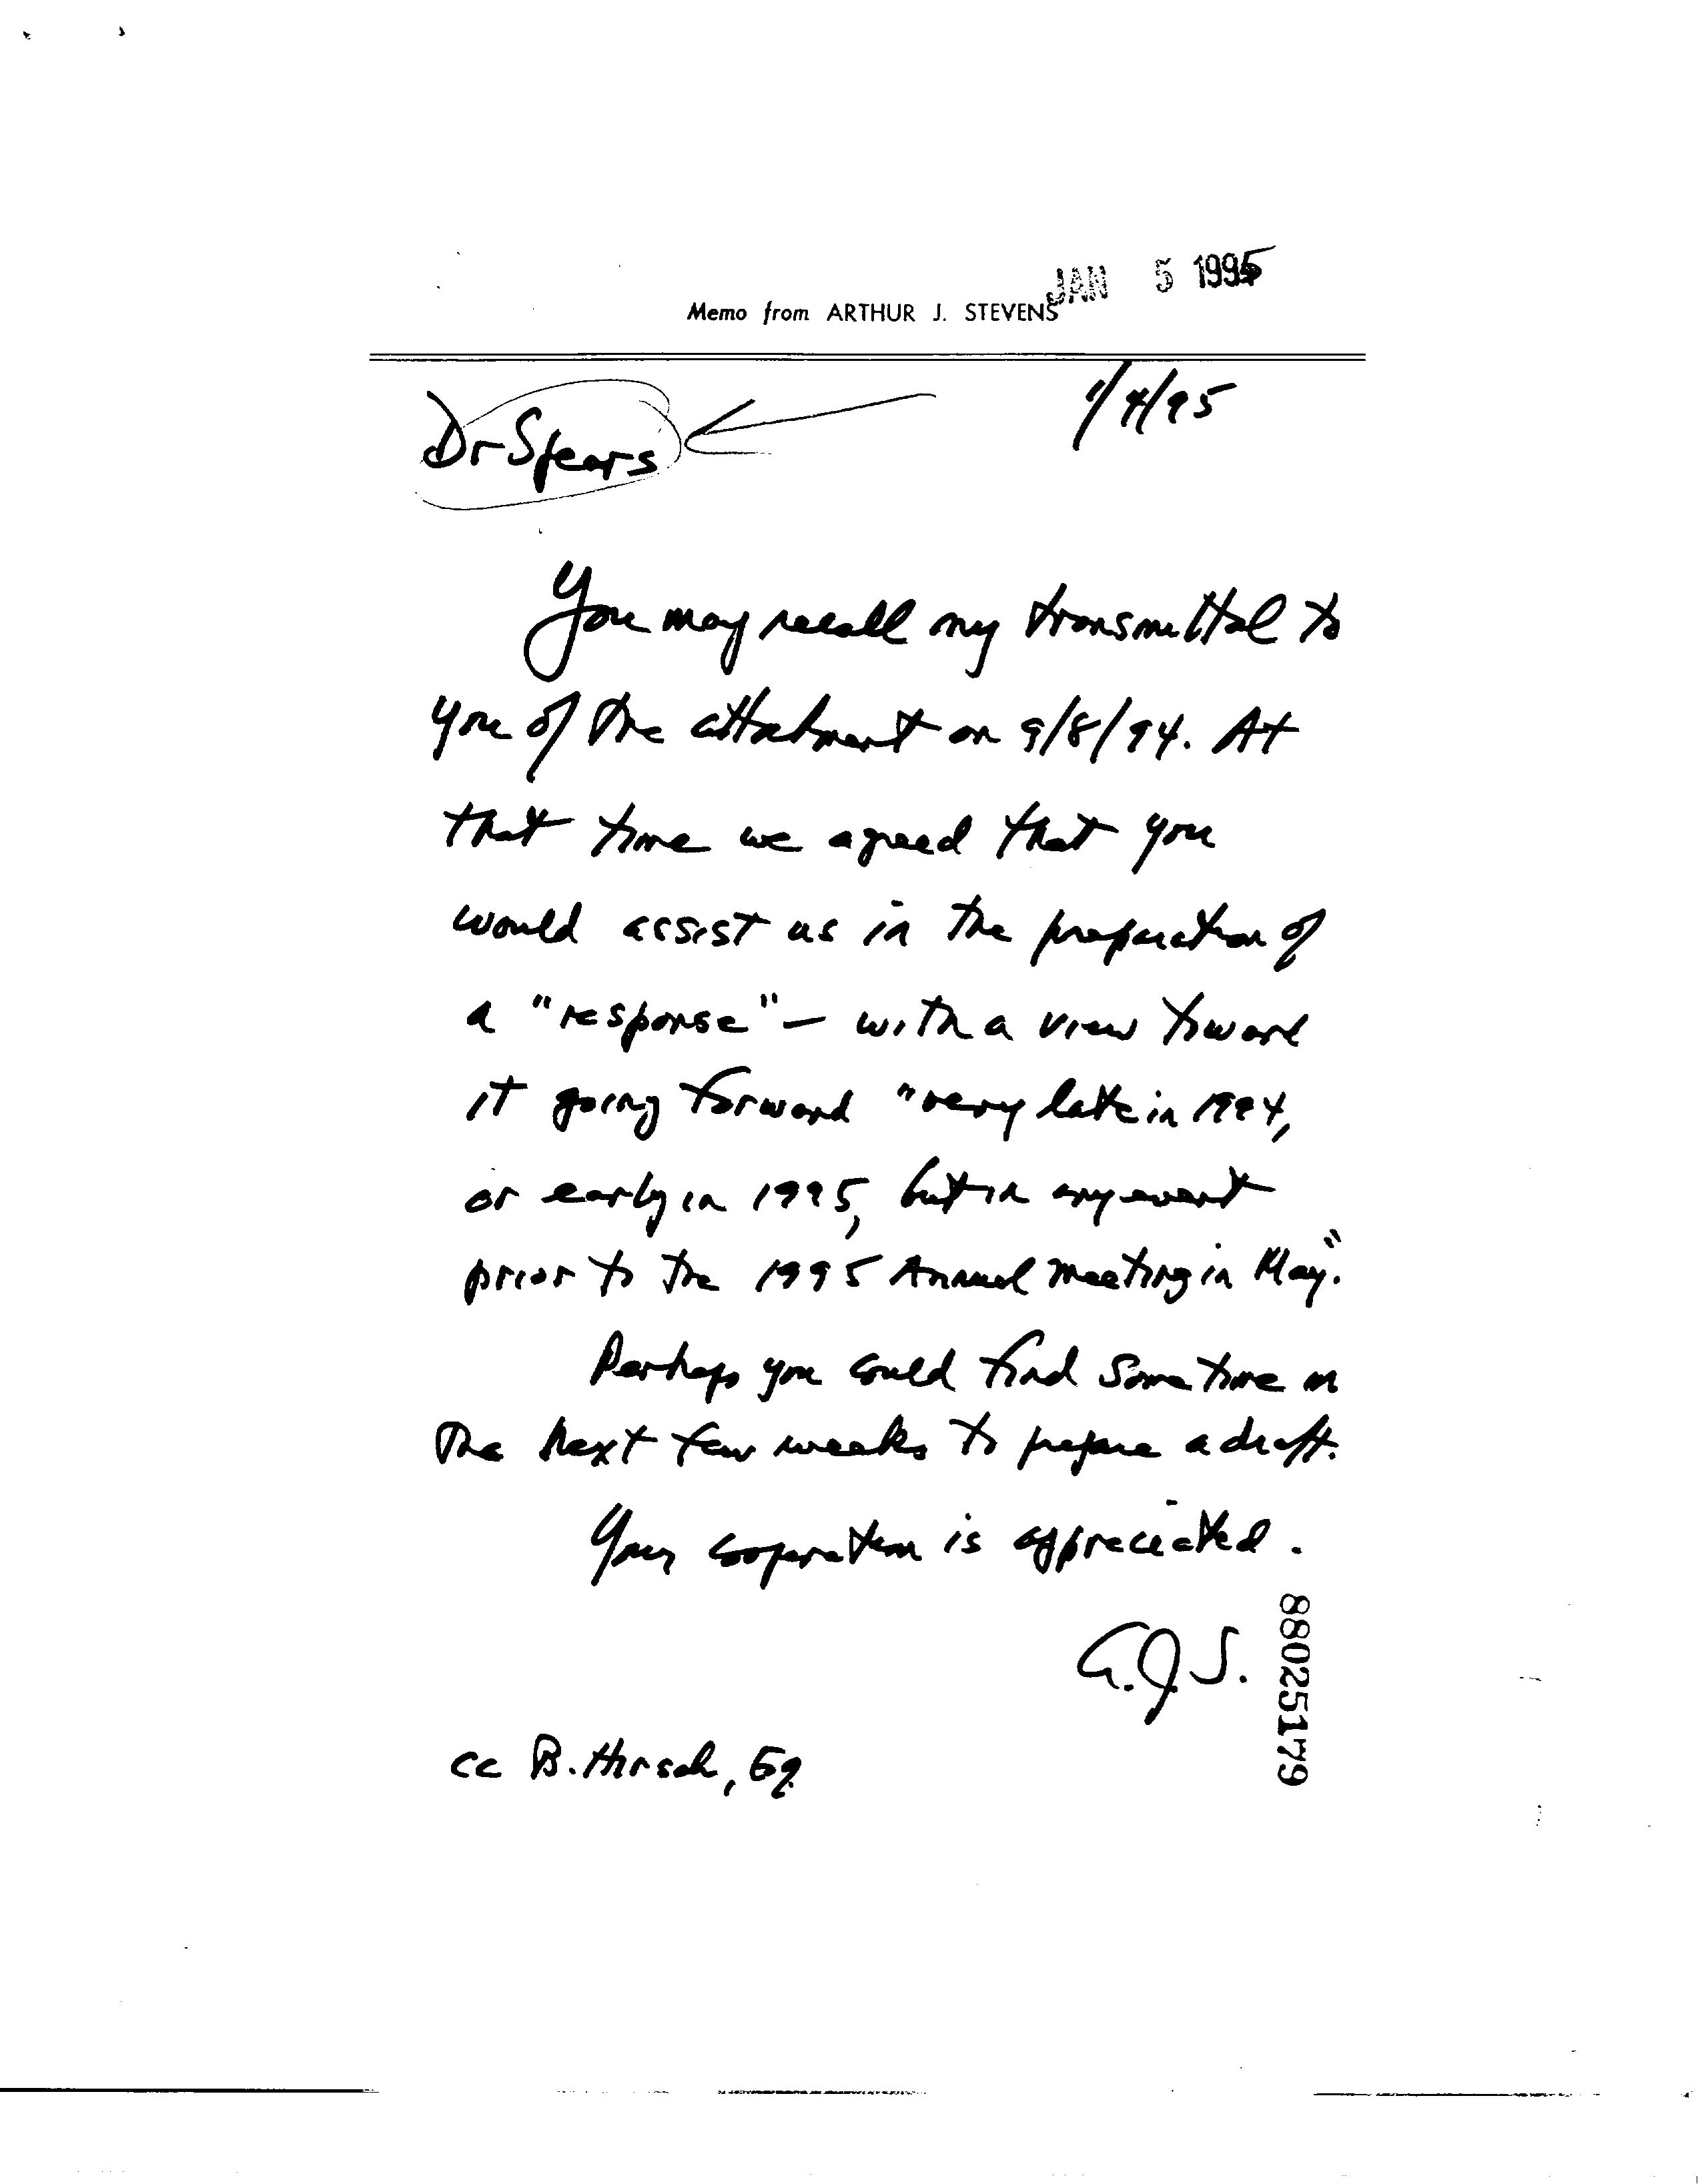 JAN 5 1995
Memo from ARTHUR J. STEVENS
1/4/95
Dr Spears
You may recall my transmittal to
you of the attachment on 9/8/94. At
that time we agreed that you
would assist us in the preparation of
a "response" – with a view toward
it going forward "very late in 1994,
or early in 1995, but in any event
prior to the 1995 Annual Meeting in May".
Perhaps you could find some time in
the next few weeks to prepare a draft.
Your cooperation is appreciated.
A.J.S.
cc B. Hirsch, Esq.
88025179